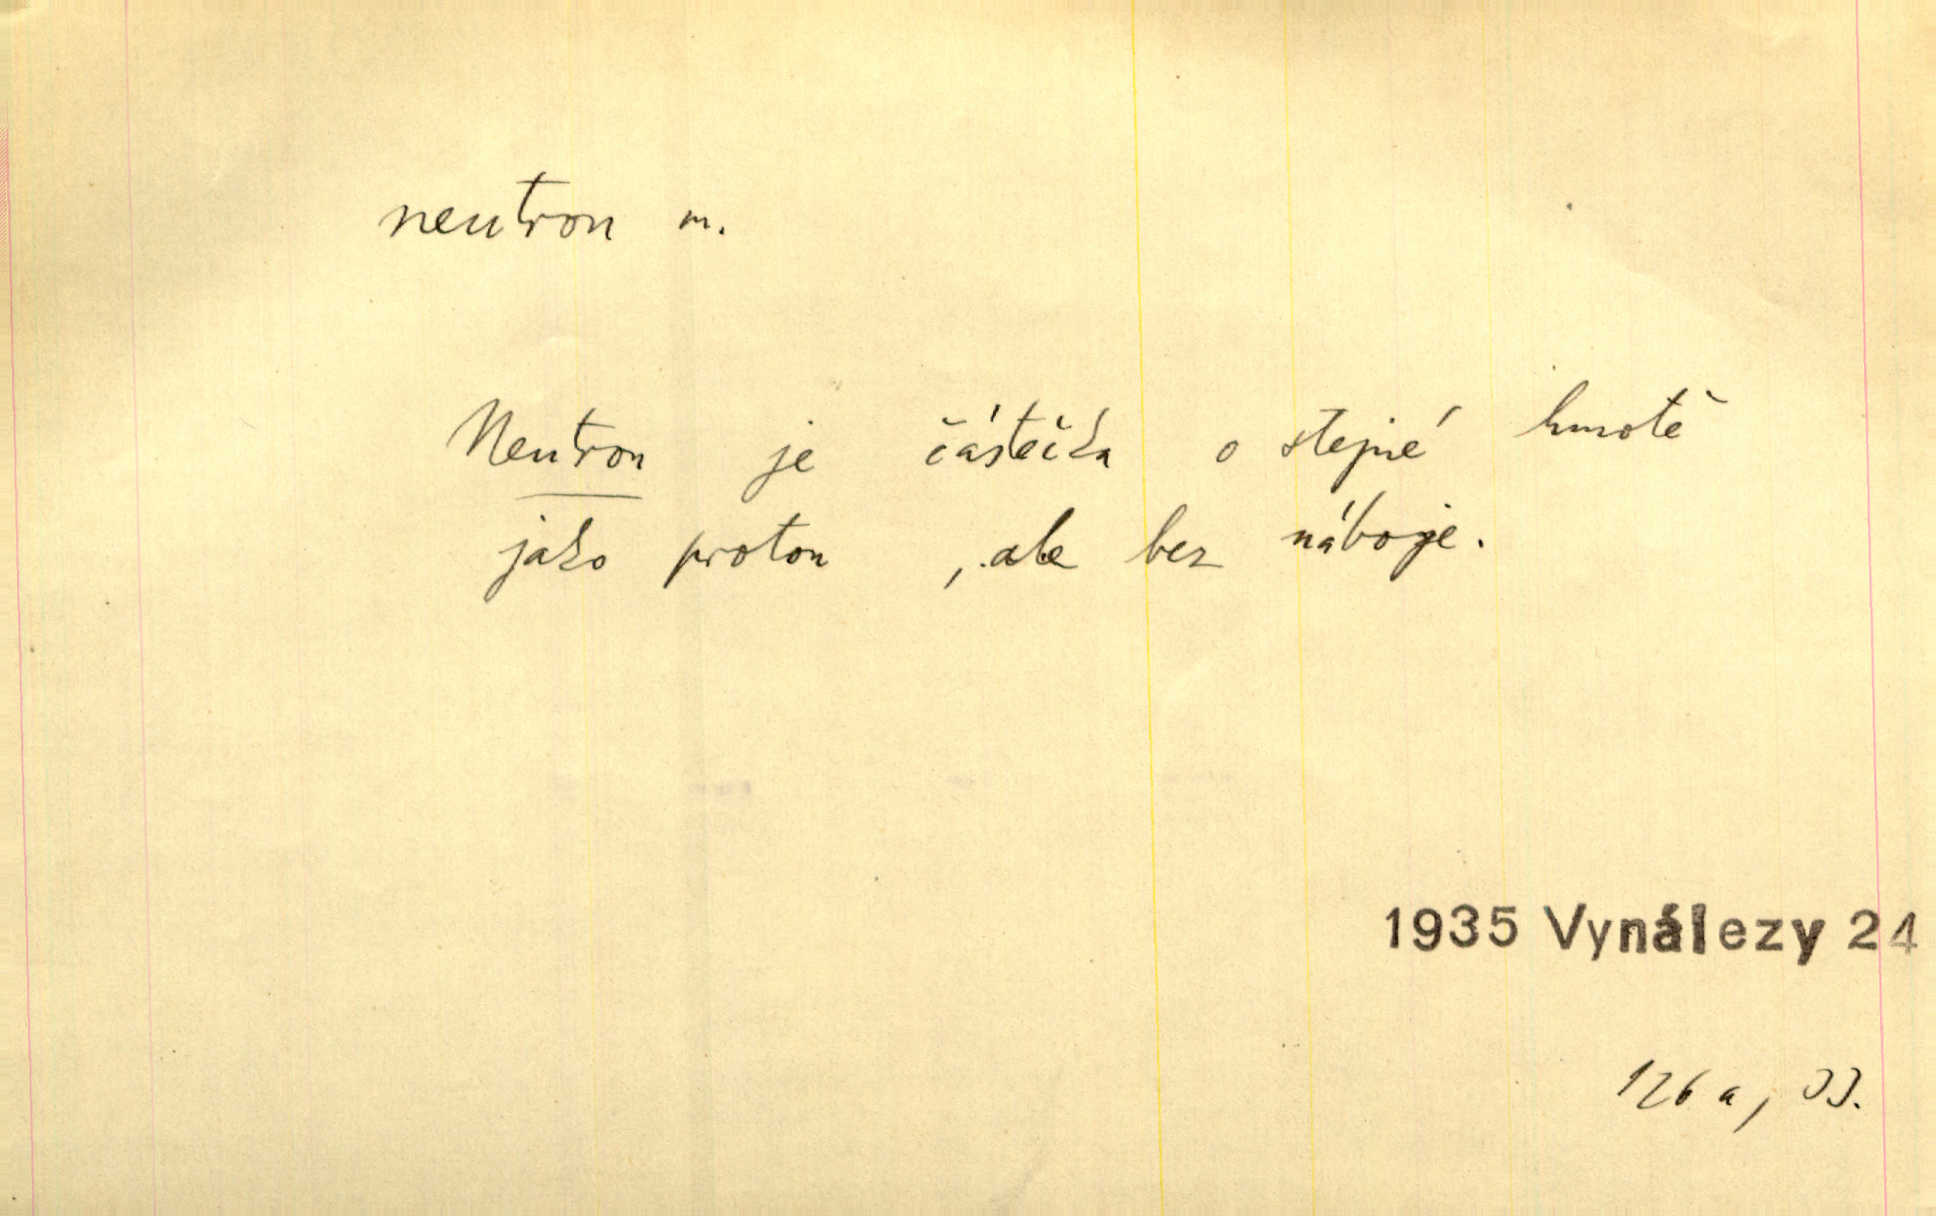 neutron m.
Neutron je částečka o stejné hmotě
jako proton, ale bez náboje.
1935 Vynálezy 24
126 a,